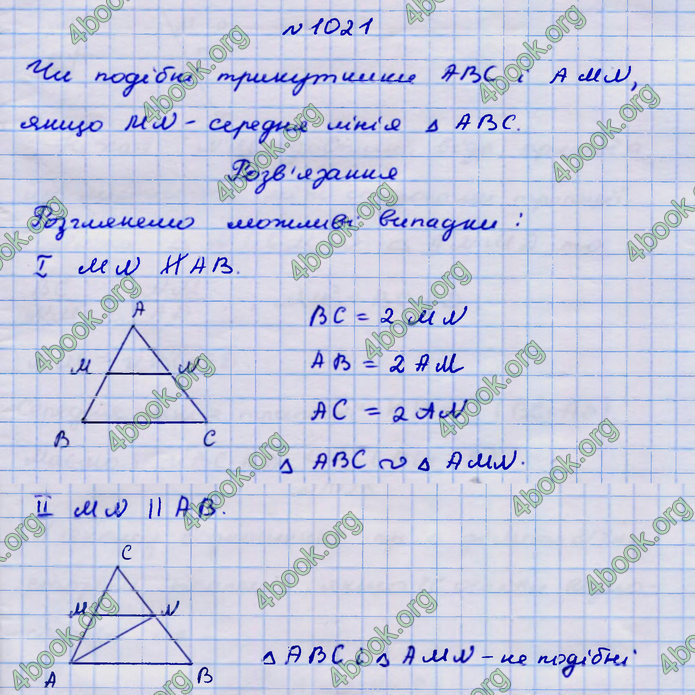 №1021
Чи подібні трикутники ABC і AMN,
якщо MN - середня лінія △ ABC.
Розв'язання
Розглянемо можливі випадки:
I MN ∦ AB.
A
M N
B C
BC = 2 MN
AB = 2 AM
AC = 2 AN
△ ABC ∾ △ AMN.
II MN || AB.
C
M N
A B
△ ABC і △ AMN - не подібні
4book.org